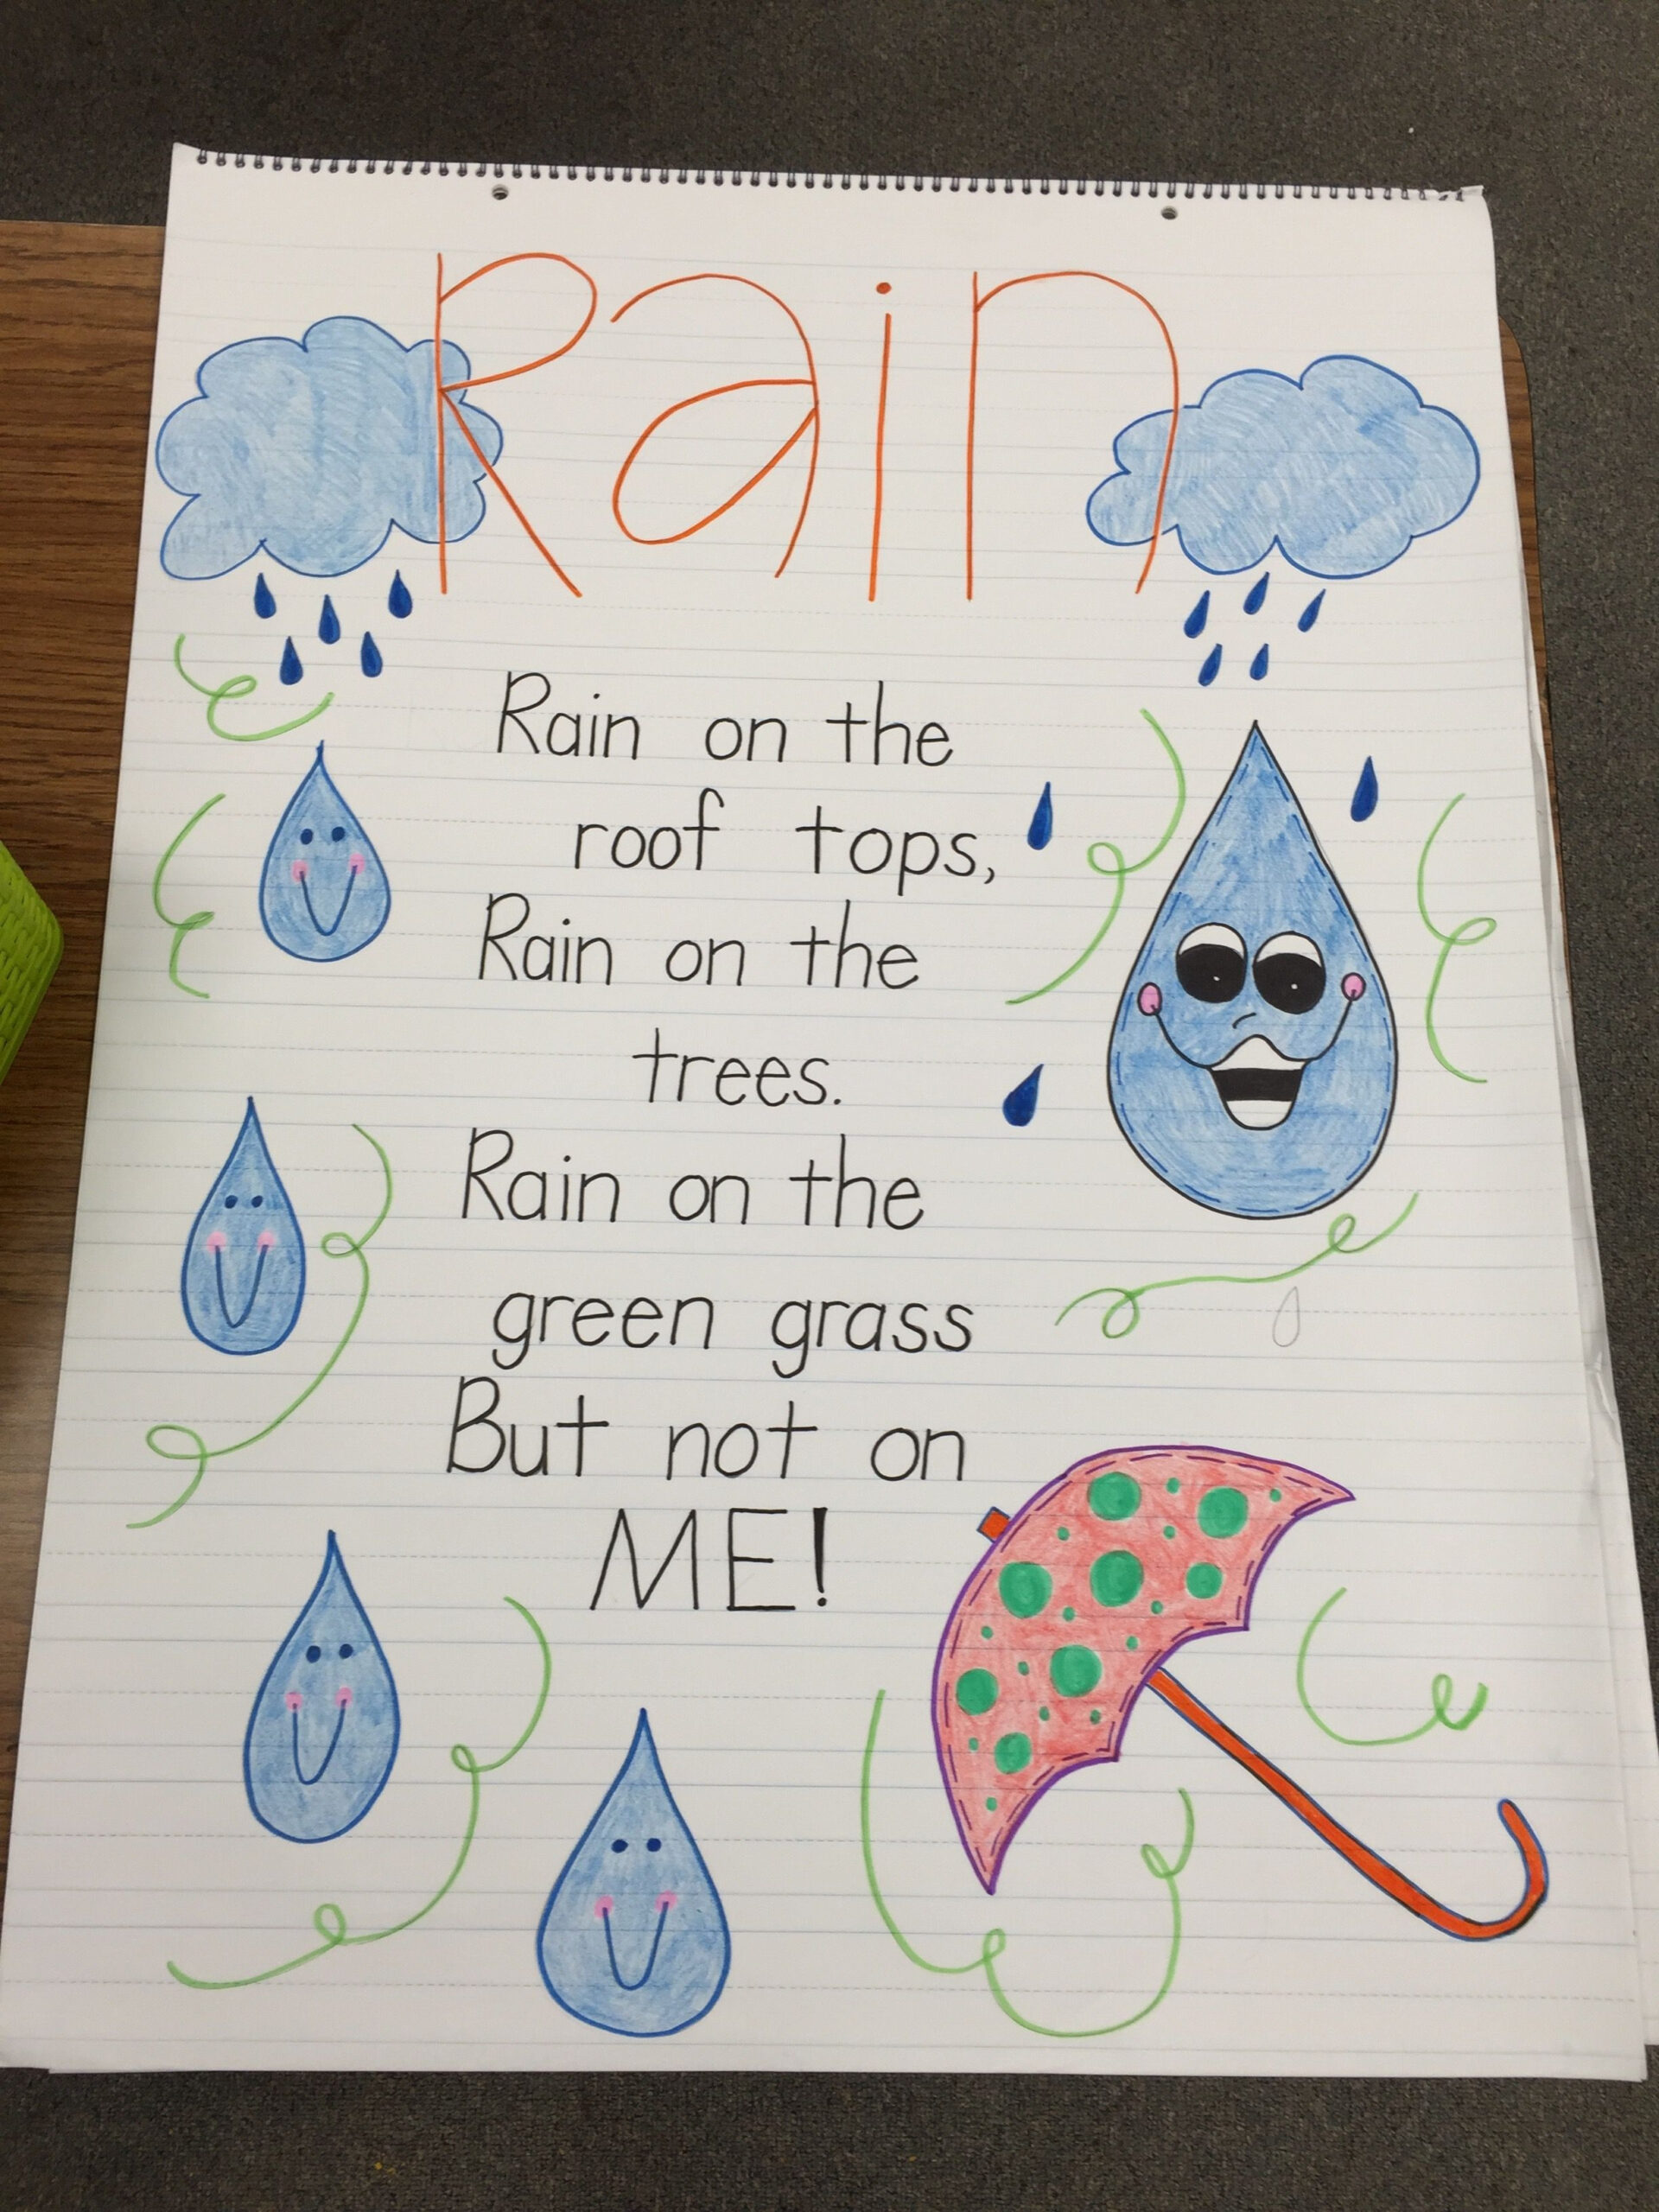 Rain
Rain on the
roof tops,
Rain on the
trees.
Rain on the
green grass
But not on
ME!